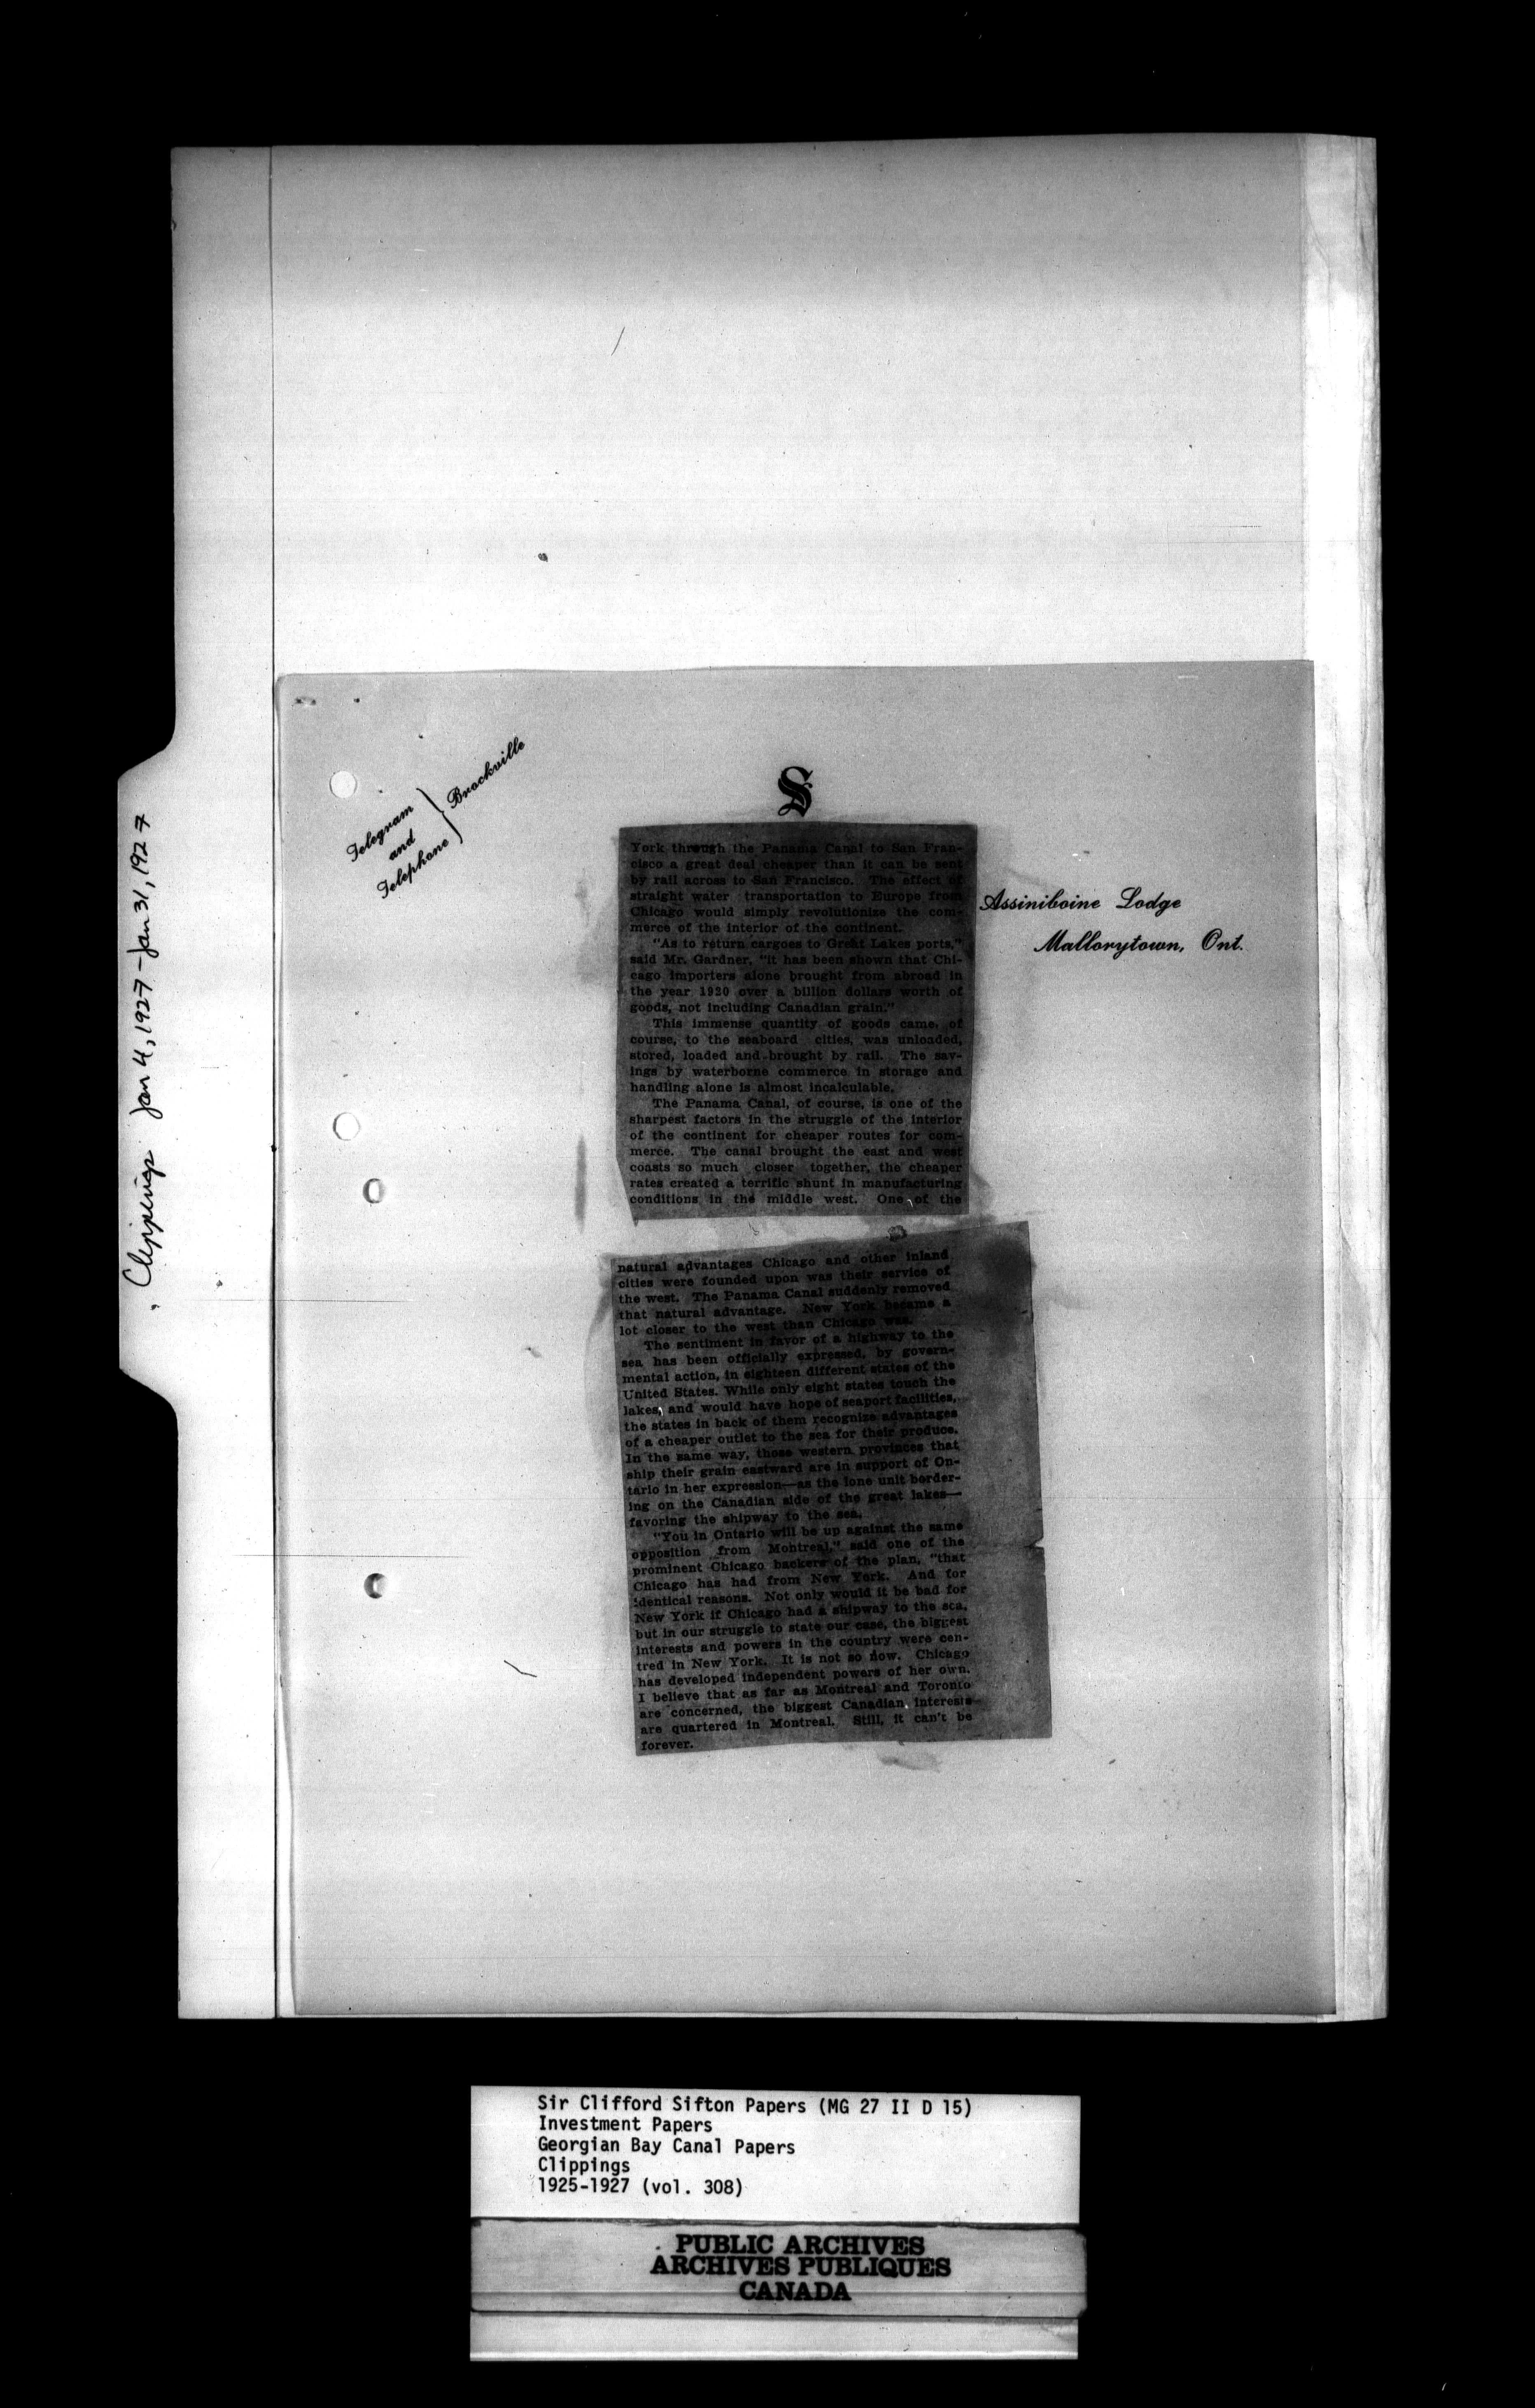 Clippings Jan 4, 1927 - Jan 31, 1927
Telegram
and
Telephone
Brockville
S
Assiniboine Lodge
Mallorytown, Ont.
York through the Panama Canal to San Fran-
cisco a great deal cheaper than it can be sent
by rail across to San Francisco. The effect of
straight water transportation to Europe from
Chicago would simply revolutionize the com-
merce of the interior of the continent.
"As to return cargoes to Great Lakes ports,"
said Mr. Gardner, "it has been shown that Chi-
cago importers alone brought from abroad in
the year 1920 over a billion dollars worth of
goods, not including Canadian grain."
This immense quantity of goods came, of
course, to the seaboard cities, was unloaded,
stored, loaded and brought by rail. The sav-
ings by waterborne commerce in storage and
handling alone is almost incalculable.
The Panama Canal, of course, is one of the
sharpest factors in the struggle of the interior
of the continent for cheaper routes for com-
merce. The canal brought the east and west
coasts so much closer together, the cheaper
rates created a terrific shunt in manufacturing
conditions in the middle west. One of the
natural advantages Chicago and other inland
cities were founded upon was their service of
the west. The Panama Canal suddenly removed
that natural advantage. New York became a
lot closer to the west than Chicago was.
The sentiment in favor of a highway to the
sea has been officially expressed, by govern-
mental action, in eighteen different states of the
United States. While only eight states touch the
lakes, and would have hope of seaport facilities,
the states in back of them recognize advantages
of a cheaper outlet to the sea for their produce.
In the same way, those western provinces that
ship their grain eastward are in support of On-
tario in her expression—as the lone unit border-
ing on the Canadian side of the great lakes—
favoring the shipway to the sea.
"You in Ontario will be up against the same
opposition from Montreal," said one of the
prominent Chicago backers of the plan, "that
Chicago has had from New York. And for
identical reasons. Not only would it be bad for
New York if Chicago had a shipway to the sea,
but in our struggle to state our case, the biggest
interests and powers in the country were cen-
tred in New York. It is not so now. Chicago
has developed independent powers of her own.
I believe that as far as Montreal and Toronto
are concerned, the biggest Canadian interests
are quartered in Montreal. Still, it can't be
forever.
Sir Clifford Sifton Papers (MG 27 II D 15)
Investment Papers
Georgian Bay Canal Papers
Clippings
1925-1927 (vol. 308)
PUBLIC ARCHIVES
ARCHIVES PUBLIQUES
CANADA